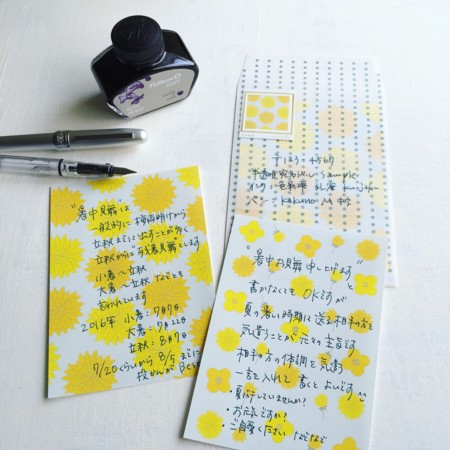 Pelikan
〒123-4567
半透明宛名なし sample
インク:色彩雫 孔雀 Kujaku
ペン:kakuno M 中字
"暑中見舞"は
一般的に 梅雨明けから
立秋までに出すことが多く
立秋からは"残暑見舞"とします
小暑〜立秋
大暑〜立秋 などとも
言われています
2016年 小暑:7月7日
大暑:7月22日
立秋:8月7日
7/20くらいから 8/5までに
投かんが Best
"暑中お見舞申し上げます"と
書かなくても OKですが
夏の暑い時期に送る相手の方を
気遣うことが 元々の主旨です
相手の方の体調を気遣う
一言を入れて 書くとよいです
・夏バテしていませんか?
・お元気ですか?
・ご自愛ください などなど